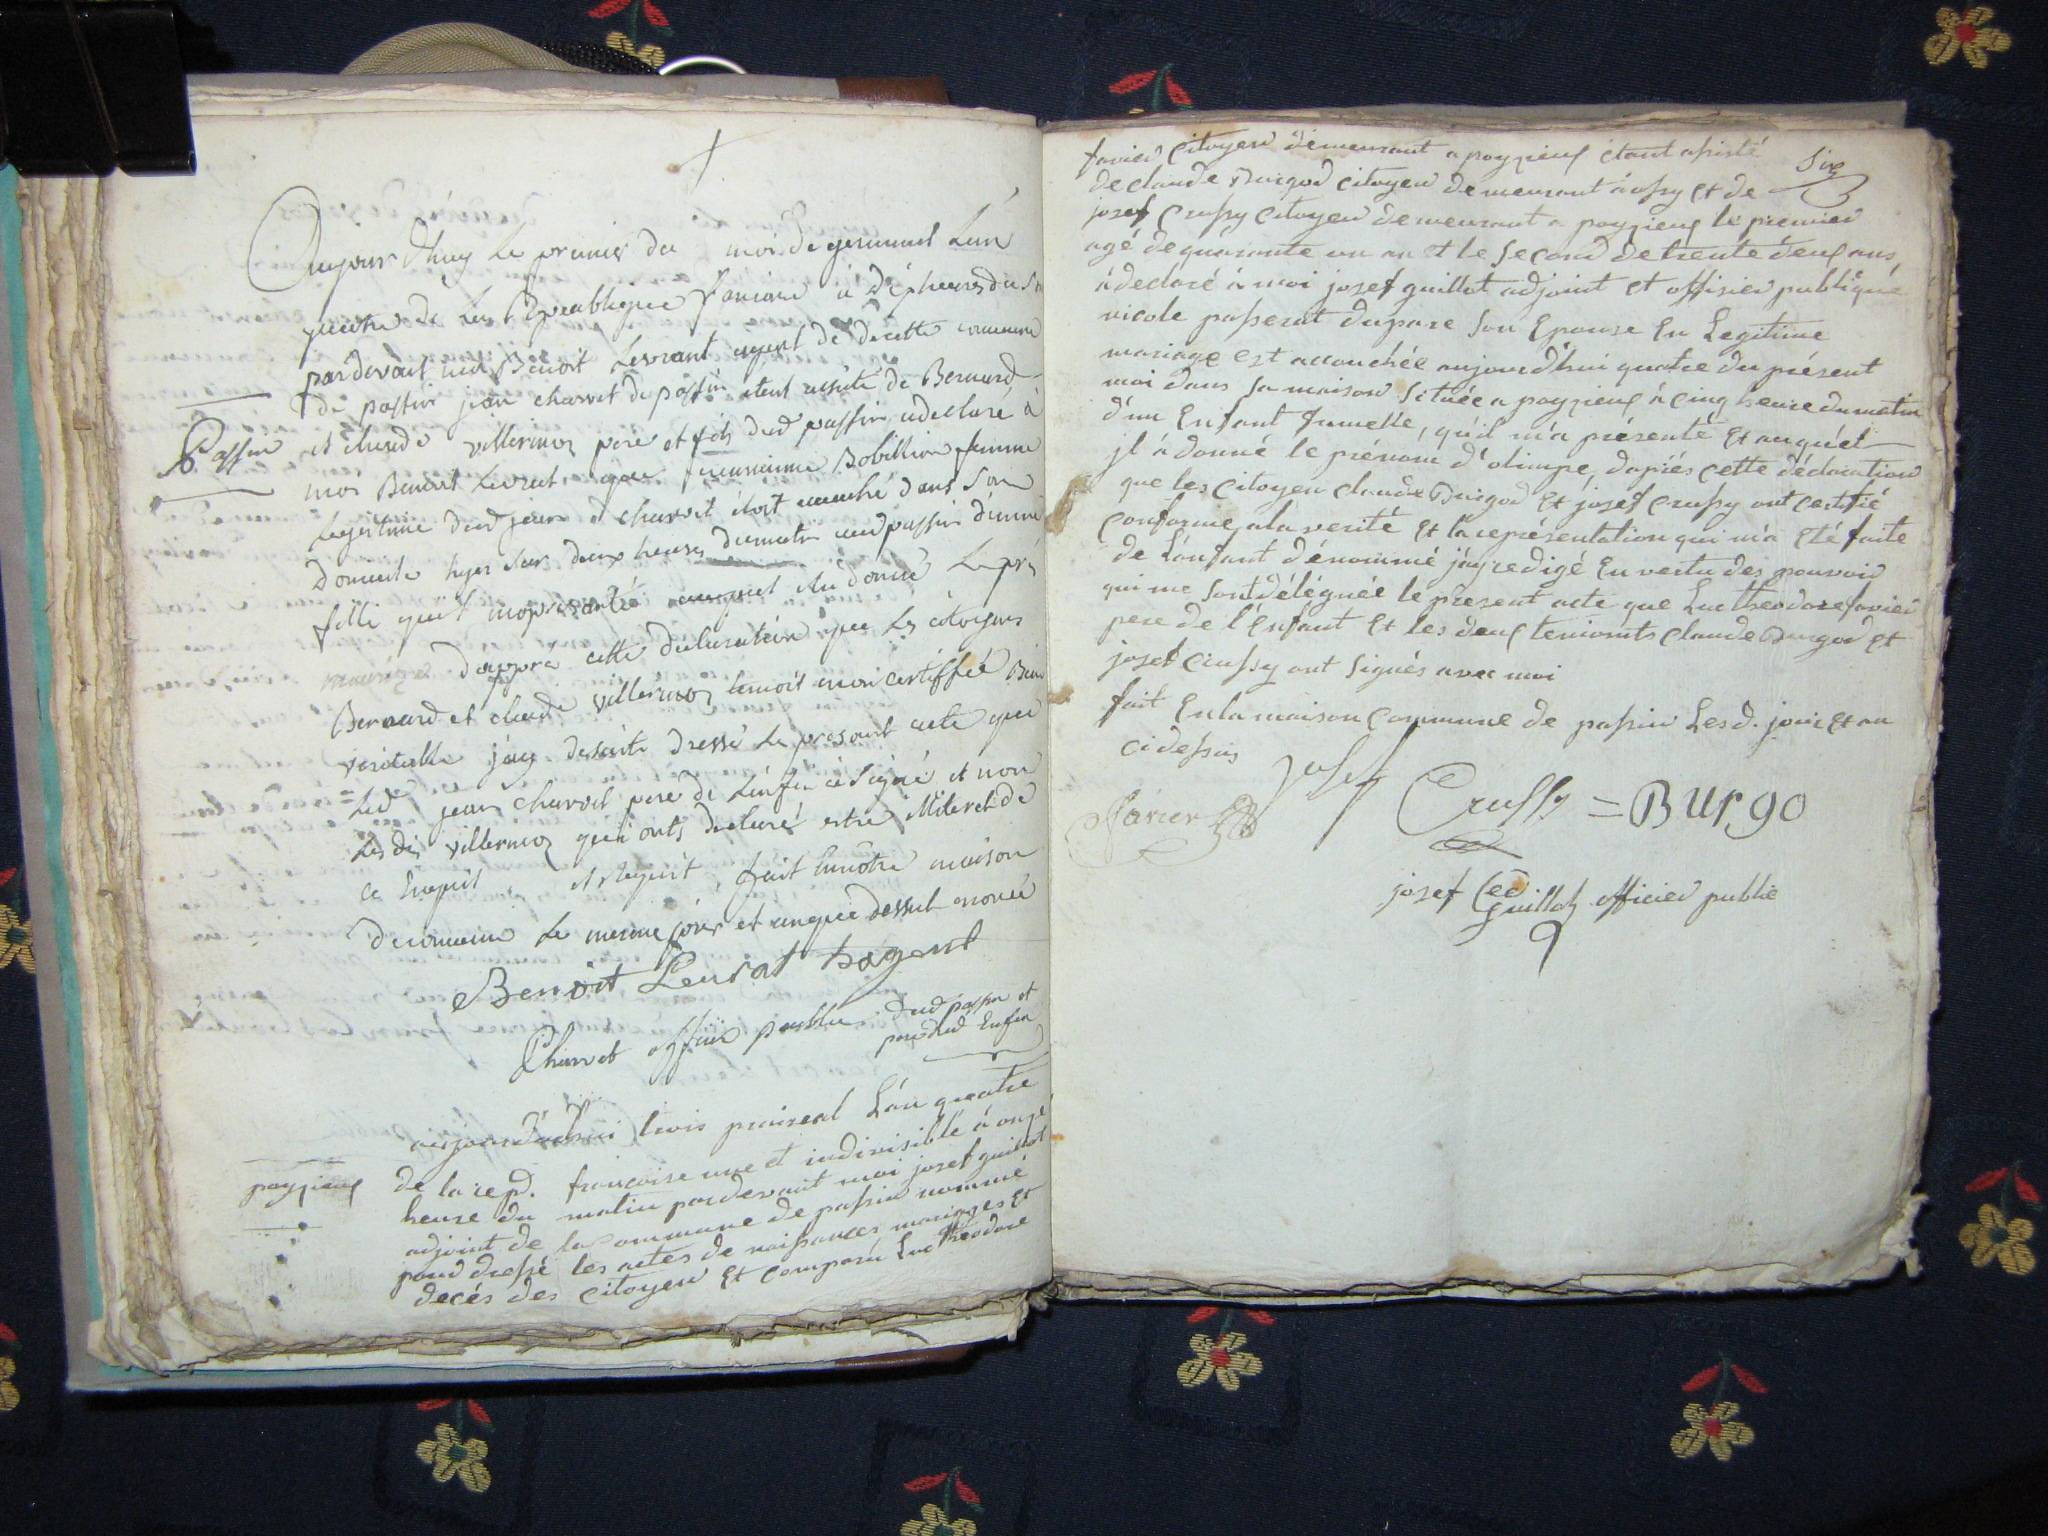 Aujourd'huy Le premier du moi de germinal Lan
quatre de La Republique francaise à
pardevant moi Benoit Levrat agent de commune
de passin jean charvet de passin etent assisté de Bernard
Passin
et claude villermoz pere et fils dud passin adeclaré à
moi Benoit Levrat, que Bobillion femme
Legitime dud jean charvet étoit acouché dans Son
Domicile hyer Sur deux heures dumatin aud passin dünne
fille quil mapresanté auquel Lepré
dappré cette declaration que Les citoyens
Bernard et claude villermoz temoit mon certiffié
veritable jay desuite dressé Le present acte que
Led jean charvet pere de Lenfen à Signé et non
Les dis villermoz qui onts declaré
ce Enquis et requit, fait Ennôtre maison
Le meme jour et anque dessut
Benoit Levrat hagent
Charvet officie publie dud passin et
pere dud Enfen
aujourd'ahui trois praireal L'an quatre
poyzieux
de la repd. francoise une et indivisible à onze
heure du matin pardevant moi josef guillot
adjoint de la Commune de passin nommé
pour dressé les actes de naissances mariages Et
decés des citoyen Et comparu Luc theodore
Six
favier, Citoyen demeurant a poyzieux étant assisté
declaude Burgod citoyen demeurant à ossy et de
josef Crussy Citoyen demeurant a poyzieux le premier
agé de quarante un an et le Second detrente deux ans,
à declaré à moi josef guillot adjoint et offisier publique
nicole passerat dupare Son Epouse En Legitime
mariage est accouchée aujourd'hui quatre du présent
moi dans sa maison Située a poyzieux à Cinq heure dumatin
d'un Enfant fumelle, qu'il m'a présenté Et auquel
jl à donné le prénom d'olimpe, daprés cette déclaration
que les citoyen claude Burgod Et josef Crussy ont certifié
Conforme, a la verité Et la représentation qui m'a Eté faite
de L'anfant dénommé j'ay redigé En vertu des pouvoir
qui me Sont délégnée le present acte que Luc theodore favier
pere de l'Enfant Et les deux temoints claude Burgod Et
josef Crussy ont Signés avec moi
fait En la maison Commune de passin Lesd. jour Et an
ci dessus
Favier josef Crussy = Burgo
josef guillot officier public